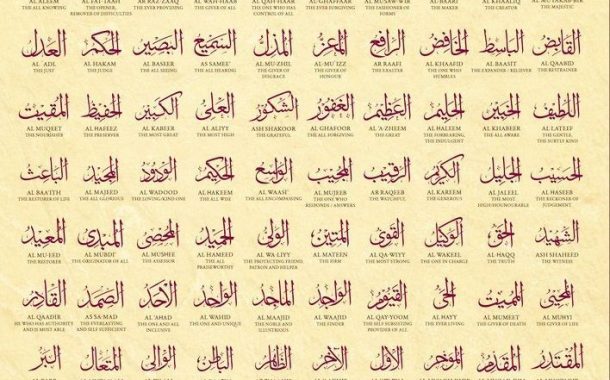 AL ALEEM AL FAT-TAAH AR RAZ-ZAAQ AL WAH-HAAB AL QAH-HAAR AL GHAFFAAR AL MUSAW-WIR AL KHAALIQ AL MU-TAKAB-BIR
THE ALL KNOWING THE OPENER, REMOVER OF DIFFICULTIES THE EVER PROVIDING THE GIVER OF ALL ONE WHO HAS CONTROL OF ALL THE EVER FORGIVING THE FASHIONER OF FORMS THE MAKER THE CREATOR THE MAJESTIC
القابض الباسط الخافض الرافع المعز المذل السميع البصير الحكم العدل
AL 'ADL AL HAKAM AL BASEER AS SAMEE' AL MU-ZHIL AL MU'IZZ AR RAAFI AL KHAAFID AL BAASIT AL QAABID
THE JUST THE JUDGE THE ALL SEEING THE ALL HEARING THE GIVER OF DISGRACE THE GIVER OF HONOUR THE EXALTER THE ONE WHO HUMBLES THE EXPANDER / RELIEVER THE RESTRAINER
اللطيف الخبير الحليم العظيم الغفور الشكور العلي الكبير الحفيظ المقيت
AL MUQEET AL HAFEEZ AL KABEER AL ALIYY ASH SHAKOOR AL GHAFOOR AL 'A-ZHEEM AL HALEEM AL KHABEER AL LATEEF
THE NOURISHER THE PRESERVER THE MOST GREAT THE MOST HIGH THE GRATEFUL THE ALL FORGIVING THE GREAT THE FORBEARING, THE INDULGENT THE ALL AWARE THE GENTLE, SUBTLY KIND
الحسيب الجليل الكريم الرقيب المجيب الواسع الحكيم الودود المجيد الباعث
AL BAA'ITH AL MAJEED AL WADOOD AL HAKEEM AL WAASI' AL MUJEEB AR RAQEEB AL KAREEM AL JALEEL AL HASEEB
THE RESTORER OF LIFE THE ALL GLORIOUS THE LOVING-KIND ONE THE ALL WISE THE ALL ENCOMPASSING THE ONE WHO RESPONDS / ANSWERS THE WATCHFUL THE GENEROUS THE MOST HIGH/HONOURABLE THE RECKONER OF JUDGEMENT
الشهيد الحق الوكيل القوي المتين الولي الحميد المحصي المبدئ المعيد
AL MU-EED AL MUBDI' AL MUSHEE AL HAMEED AL WA-LIYY AL MATEEN AL QA-WIYY AL WAKEEL AL HAQQ ASH SHAHEED
THE RESTORER THE ORIGINATOR OF ALL THE ASSESSOR THE ALL PRAISEWORTHY THE PROTECTING FRIEND, PATRON AND HELPER THE FIRM THE MOST STRONG THE ONE IN CHARGE THE TRUTH THE WITNESS
المحيي المميت الحي القيوم الواجد الماجد الواحد الاحد الصمد القادر
AL QAADIR AS SA-MAD AL 'AHAD AL WAHID AL MAAJID AL WAAJID AL QAY-YOOM AL HAYY AL MUMEET AL MUHYI
HE WHO HAS AUTHORITY AND IS MOST ABLE THE EVERLASTING AND SELF SUFFICIENT THE ONE AND ALL INCLUSIVE THE ONE AND UNIQUE THE NOBLE AND ILLUSTRIOUS THE FINDER THE SELF SUBSISTING PROVIDER OF ALL THE EVER LIVING THE GIVER OF DEATH THE GIVER OF LIFE
المقتدر المقدم المؤخر الأول الآخر الظاهر الباطن الوالي المتعال البر